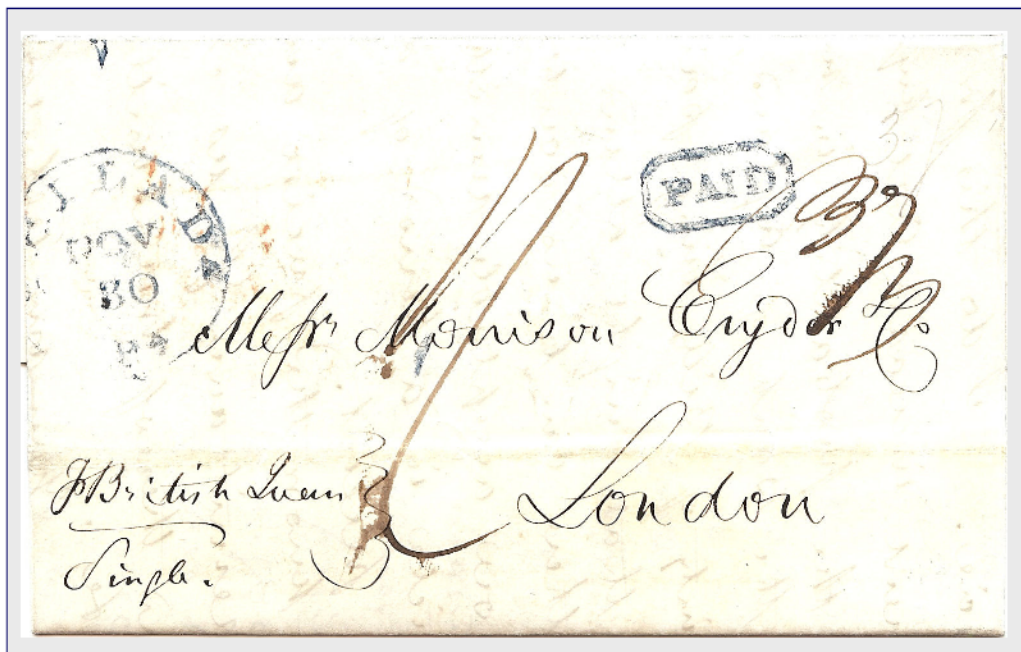 PAID
NOV
30
Messrs Morrison Cryder & Co
London
p British Queen
Single.